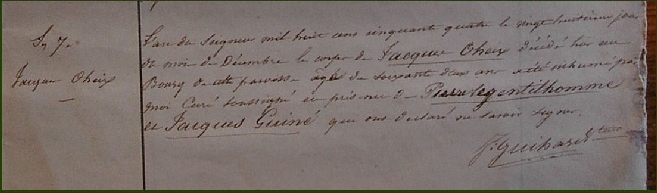 S. 7.
Jacques Oheix
L'an du Seigneur mil huit cens cinquante quatre le vingt huitième jour
du mois de Décembre le corps de Jacques Oheix décédé hier au
Bourg de cette paroisse âgé de soixante deux ans a été inhumé par
moi Curé soussigné en présence de Pierre legentilhomme
et Jacques Guiné qui ont déclaré ne savoir signer.
J. Guihard